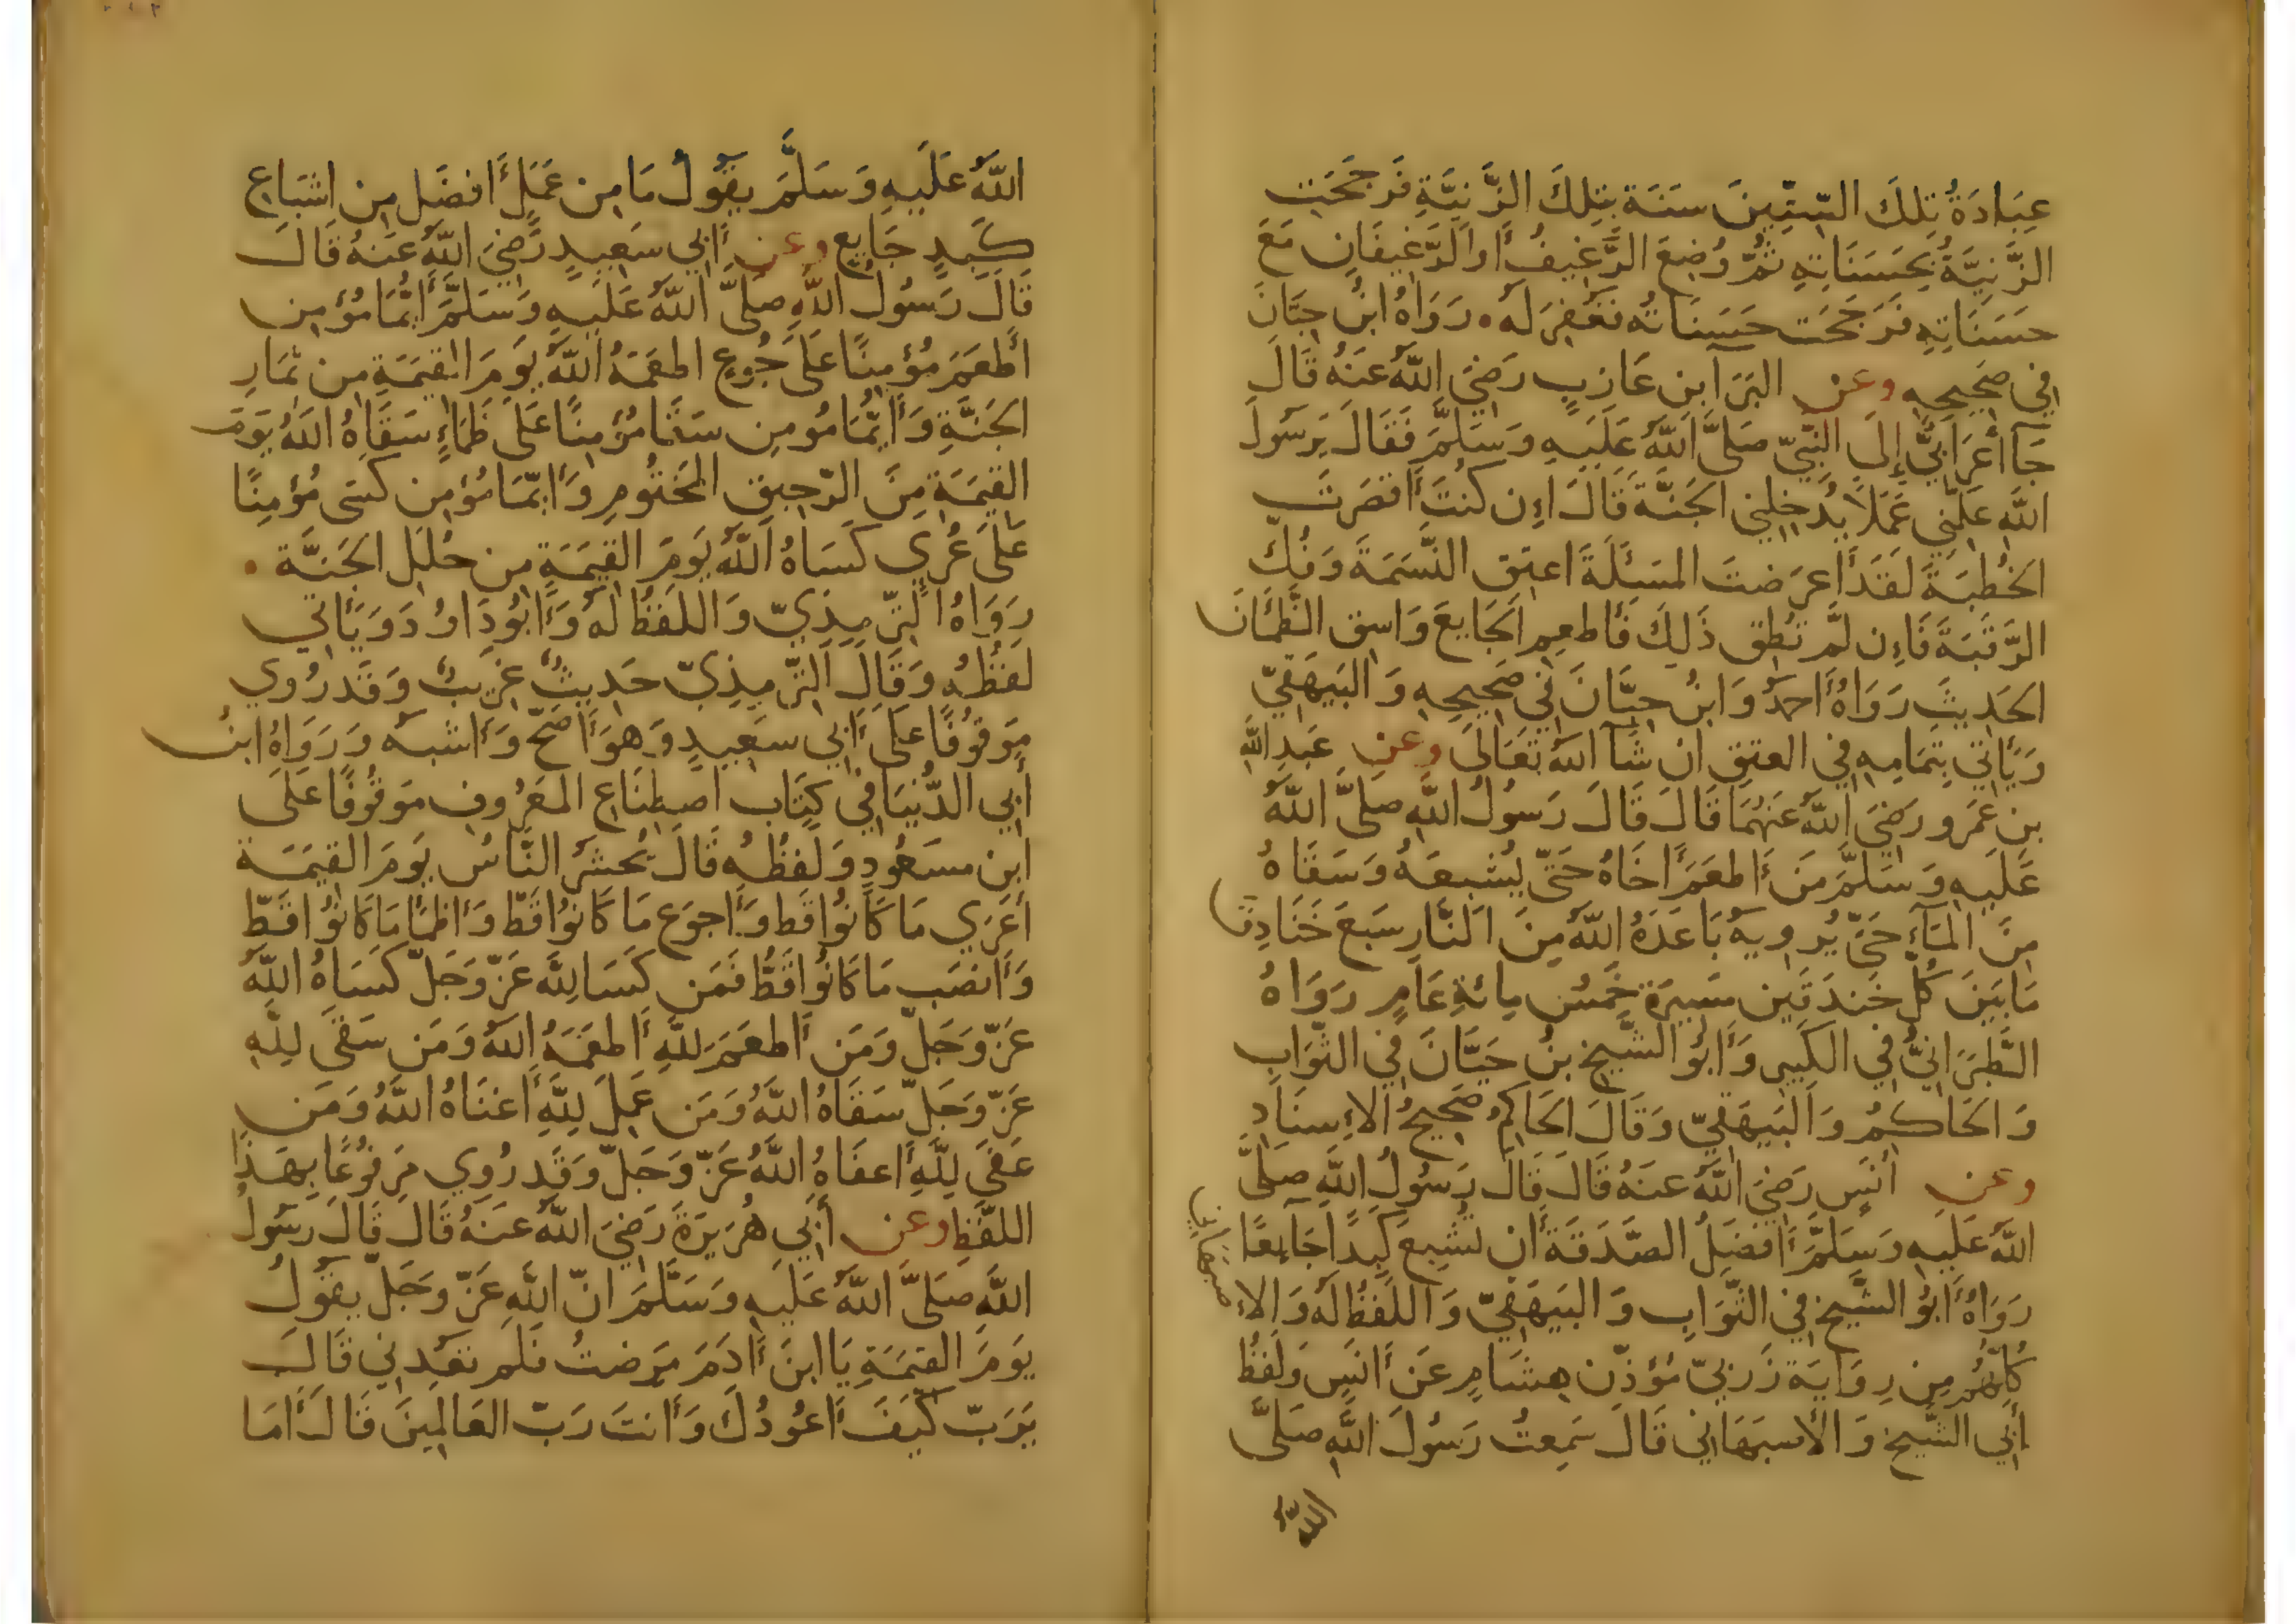 عِبَادَةُ تِلكَ السِّتِّينَ سَنَة بِتِلكَ الزَّنيَّةِ فَرجَحَت
الزَّنيَّةُ بِحَسَنَاتِهِ ثُمَّ وُضِعَ الرَّغِيفُ أَو الرَّغِيفَانِ مَعَ
حَسَنَاتِهِ فَرَجَحَت حَسَنَاتُه فَغُفِرَ لَه . رَوَاهُ ابنُ حِبَّانَ
فِي صَحِيحِهِ وعن البَرَا بن عَازِبٍ رَضِيَ اللَّهُ عَنهُ قَالَ
جَا أَعرَابِيٌّ إِلَى النَّبِيِّ صَلَّى اللَّهُ عَلَيهِ وَسَلَّمَ فَقَالَ يَرَسُولَ
اللَّهِ عَلِّمنِي عَمَلاً يُدخِلنِي الجَنَّةَ قَالَ اِن كُنتَ أَقصَرتَ
الخُطبَةَ لَقَد أَعرَضتَ المَسئَلَةَ اعتِق النَّسَمَةَ وَفُكّ
الرَّقَبَةَ فَاِن لَم تُطِق ذَلِكَ فَأَطعِمِ الجَايعَ وَاسقِ الظَّمْانَ
الحَدِيثَ رَوَاهُ أَحمَدُ وَابنُ حِبَّانَ فِي صَحِيحِهِ وَالبَيهَقِيّ
وَيَأتِي بِتَمَامِهِ فِي العِتقِ ان شَآ اللَّهُ تَعَالَى وعن عَبدِ اللَّهِ
بن عَمرو رَضِيَ اللَّهُ عَنهُمَا قَالَ قَالَ رَسُولُ اللَّهِ صلَّى اللَّهُ
عَلَيهِ وَسَلَّمَ مَن أَطعَمَ أَخَاهُ حَتَّى يُشبِعَهُ وَسَقَاهُ
مِنَ المَآءِ حَتَّى يُروِيهُ بَاعَدَهُ اللَّهُ مِنَ النَّارِ سَبعَ خَنَادِقَ
مَا بَينَ كُلّ خَندَقَينِ مَسِيرَة خَمسُ مِائَةِ عَامٍ رَوَاهُ
الطَّبَرَانِيُّ فِي الكَبِيرِ وَأَبُو الشَّيخِ بنُ حَيَّانَ فِي الثَّوَابِ
وَالحَاكِمُ وَالبَيهَقِيّ وَقَالَ الحَاكِمُ صَحِيحُ الاِسنَادِ
وعن أَنَسٍ رَضِيَ اللَّهُ عَنهُ قَالَ قَالَ رَسُولُ اللَّهِ صَلَّى
اللَّهُ عَلَيهِ وَسَلَّمَ أَفضَلُ الصَّدَقَةَ أَن تُشبِعَ كَبِدًا جَآئعًا
رَوَاهُ أَبُو الشَّيخ فِي الثَّوَابِ وَالبَيهَقِيّ وَاللَّفظُ لَهُ وَالاِ
صبَهَانِي
كُلّهُم مِن رِوَايَةَ زَربيّ مُؤَذِّن هِشَامٍ عَن أَنَسٍ وَلَفظُ
أَبِي الشَّيخِ وَالأَسبهَانِي قَالَ سَمِعتُ رَسُولَ اللَّهِ صَلَّى
اللَّهُ
اللَّهُ عَلَيهِ وَسَلَّمَ يقُولُ مَا مِن عَمَلٍ أَفضَل مِن اِشبَاعِ
كَبِدٍ جَايعٍ وعن أَبِي سَعِيدٍ رَضِيَ اللَّهُ عَنهُ قَالَ
قَالَ رَسُولُ اللَّهِ صلَّى اللَّهُ عَلَيهِ وَسَلَّمَ أَيُّمَا مُؤمِن
أَطعَمَ مُؤمِنًا عَلَى جُوعٍ اطعَمَهُ اللَّهُ يَومَ القِيمَةِ مِن ثِمَارِ
الجَنَّةِ وَأَيُّمَا مُومِن سَقَا مُؤمِنًا عَلَى ظَمَاءٍ سَقَاهُ اللَّهُ يَومَ
القِيمَةِ مِنَ الرَّحِيقِ المَختُومِ وَأَيّمَا مُؤمِن كَسَى مُؤمِنًا
عَلَى عُرْيٍ كَسَاهُ اللَّهُ يَومَ القِيمَةِ مِن حُلَلِ الجَنَّة .
رَوَاهُ التِّرمِذِيّ وَاللَّفظُ لَهُ وَأَبُو دَاوُدَ وَيَأتِي
لَفظُهُ وَقَالَ التِّرمِذِيّ حَدِيثٌ غَرِيبٌ وَقَد رُوي
مَوقُوفًا عَلَى أَبِي سَعِيدٍ وَهُوَ أَصَحّ وَأَشبَه وَرَوَاهُ ابنُ
أَبِي الدُّنيَا فِي كِتَاب اصطِنَاعِ المَعرُوفِ مَوقُوفًا عَلَى
ابن مسعُودٍ وَلَفظُهُ قَالَ يُحشَرُ النَّاسُ يَومَ القِيمَة
أَعرَي مَا كَانُوا قَط وَأَجوَع مَا كَانُوا قَطّ وَأَظمَأ مَا كَانُوا قَطّ
وَأَنصَب مَا كَانُوا قَطُّ فَمَن كَسَا لِلَّهِ عَزّ وَجَلّ كَسَاهُ اللَّهُ
عَزّ وَجَلّ وَمَن أَطعَمَ لِلَّهِ أَطعَمَهُ اللَّهُ وَمَن سَقَى لِلَّهِ
عَزّ وَجَلّ سَقَاهُ اللَّهُ وَمَن عَمِلَ لِلَّهِ أَغنَاهُ اللَّهُ وَمَن
عَفَى لِلَّهِ أَعفَاهُ اللَّهُ عَزّ وَجَلّ وَقَد رُوِي مَرفُوعًا بِهَذَا
اللَّفظِ وعن أَبِي هُرَيرَةَ رَضِيَ اللَّهُ عَنهُ قَالَ قَالَ رَسُولُ
اللَّهِ صَلَّى اللَّهُ عَلَيهِ وَسَلَّمَ انّ اللَّهَ عَزّ وَجَلّ يقُولُ
يَومَ القِيمَةِ يَا ابنَ أَدَمَ مَرِضتُ فَلَم تَعُدنِي قَالَ
يَرَبّ كَيفَ أَعُودُكَ وَأَنتَ رَبّ العَالَمِينَ قَالَ أَمَا